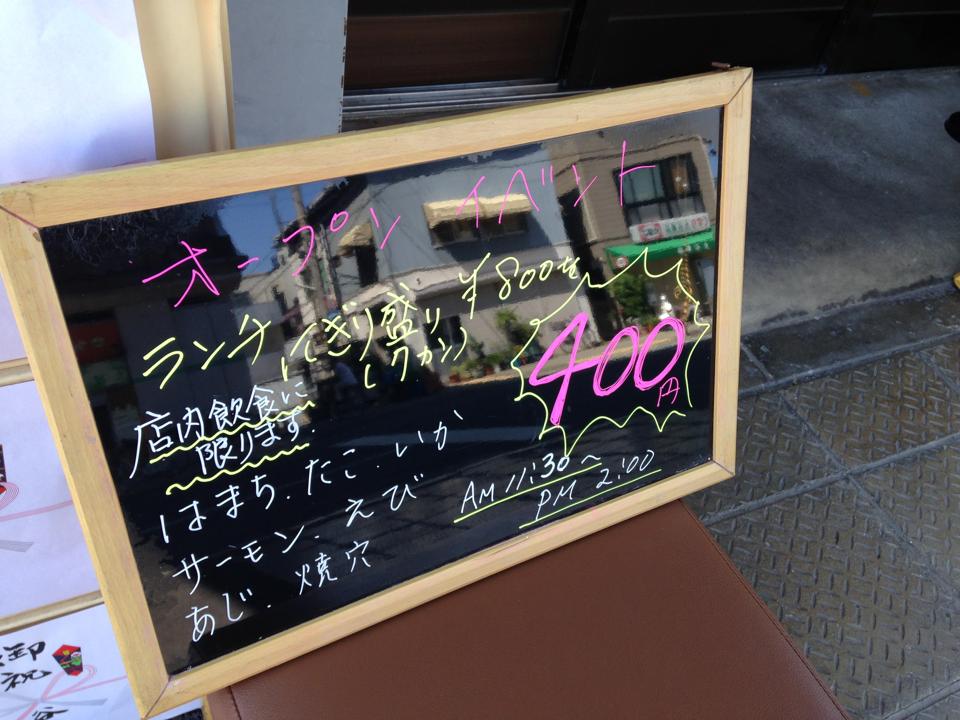 オープン イベント
ランチ にぎり盛り ¥800を
(7カン)
400円
店内飲食に
限ります.
はまち.たこ.いか
サーモン.えび
あじ.焼穴
AM 11:30〜
PM 2:00
御祝